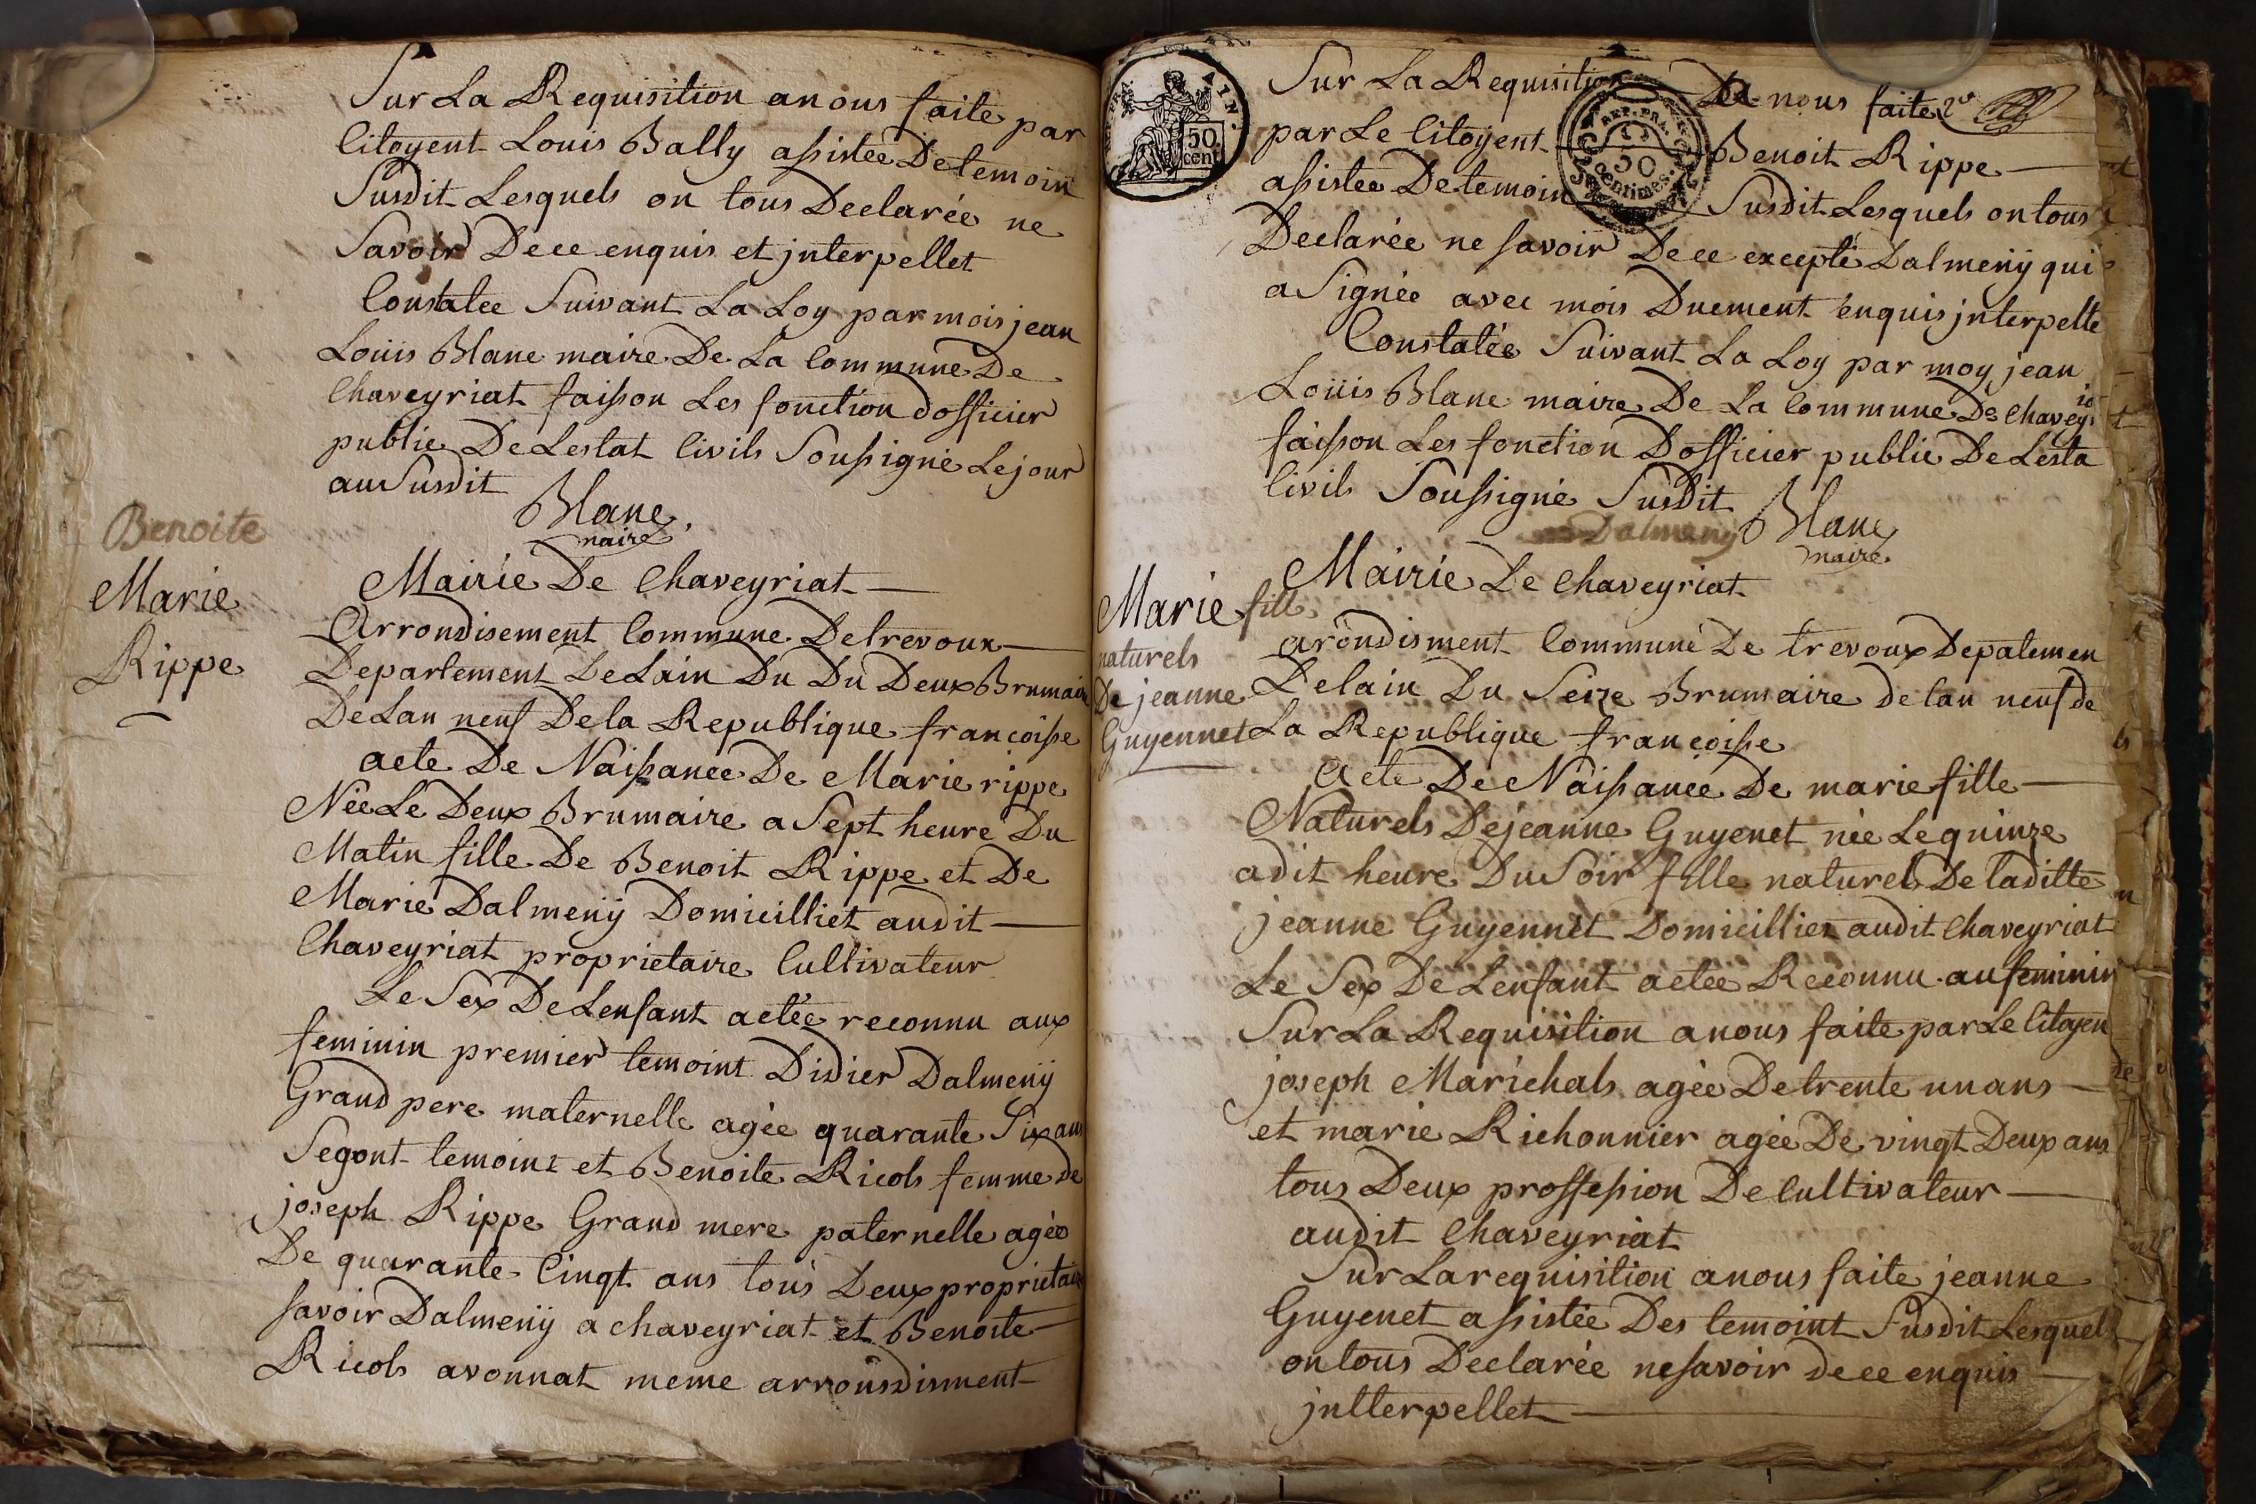 Sur La Requisition a nous faite par
Citoyent Louis Bally assistée De temoin
Susdit Lesquels on tous Declarée ne
Savoir De ce enquis et jnterpellet
Constatee Suivant La Loy par mois jean
Louis Blanc maire De La Commune De
Chaveyriat faisson Les fonction dofficier
public De Lestat Civils Soussigné Le jour
au Susdit
Blanc
maire
Benoite
Marie
Rippe
Mairie De Chaveyriat
Arrondisement Commune De trevoux
Departement De Lain Du Du Deux Brumaire
De Lan neuf De la Republique francoisse
acte De Naissance De Marie rippe
Née Le Deux Brumaire a Sept heure Du
Matin fille De Benoit Rippe et De
Marie Dalmenÿ Domicilliet audit
Chaveyriat proprietaire Cultivateur
Le Sex De Lenfant actée reconnu aux
feminin premier temoint Didier Dalmenÿ
Grand pere maternelle agée quarante Six ans
Segont temoint et Benoite Ricols femme de
joseph Rippe Grand mere paternelle agée
De quarante Cinqt ans tous Deux proprietaire
savoir Dalmenÿ a chaveyriat et Benoite
Ricols avonnat meme arrousdisment
50
cent.
REP. FRA.
50
Centimes
Sur La Requisition De nous faite
par Le Citoyent Benoit Rippe
assistee De temoin Susdit Lesquels on tous
Declarée ne savoir De ce excepté Dalmenÿ qui
a Signée avec mois Duement enquis jnterpelte
Constatée Suivant La Loy par moy jean
Loüis Blanc maire De La Commune De Chaveyriat
faisson Les fonction Dofficier public De Lesta
Civils Soussigné Susdit
Dalmeny Blanc
maire
Marie fille
naturels
De jeanne
Guyennet
Mairie De Chaveyriat
arondisment Commune De trevoux Depatemen
De lain Du Seize Brumaire de lan neuf de
La Republique francoisse
acte De Naissance De marie fille
Naturels De jeanne Guyenet née Le quinze
a dit heure Du Soir fille naturel De laditte
jeanne Guyennet Domicilliez audit Chaveyriat
Le Sex De Lenfant actee Reconnu au feminin
Sur La Requisition a nous faite par Le Citoyen
joseph Marichals agée De trente un ans
et marie Richonnier agée De vingt Deux ans
tous Deux proffession De Cultivateur
audit Chaveyriat
Sur La requisition a nous faite jeanne
Guyenet assistée Des temoint Susdit Lesquels
on tous Declarée ne savoir de ce enquis
jntterpellet